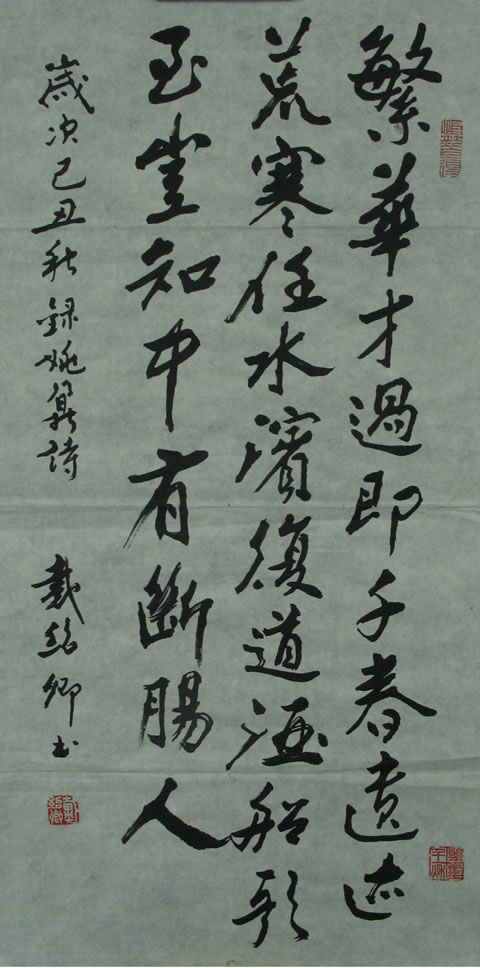 繁華才過即千春遺迹
荒寒任水濱復道酒船歌
至豈知中有斷腸人
歲次己丑秋錄姚鼐詩
戴紹卿書